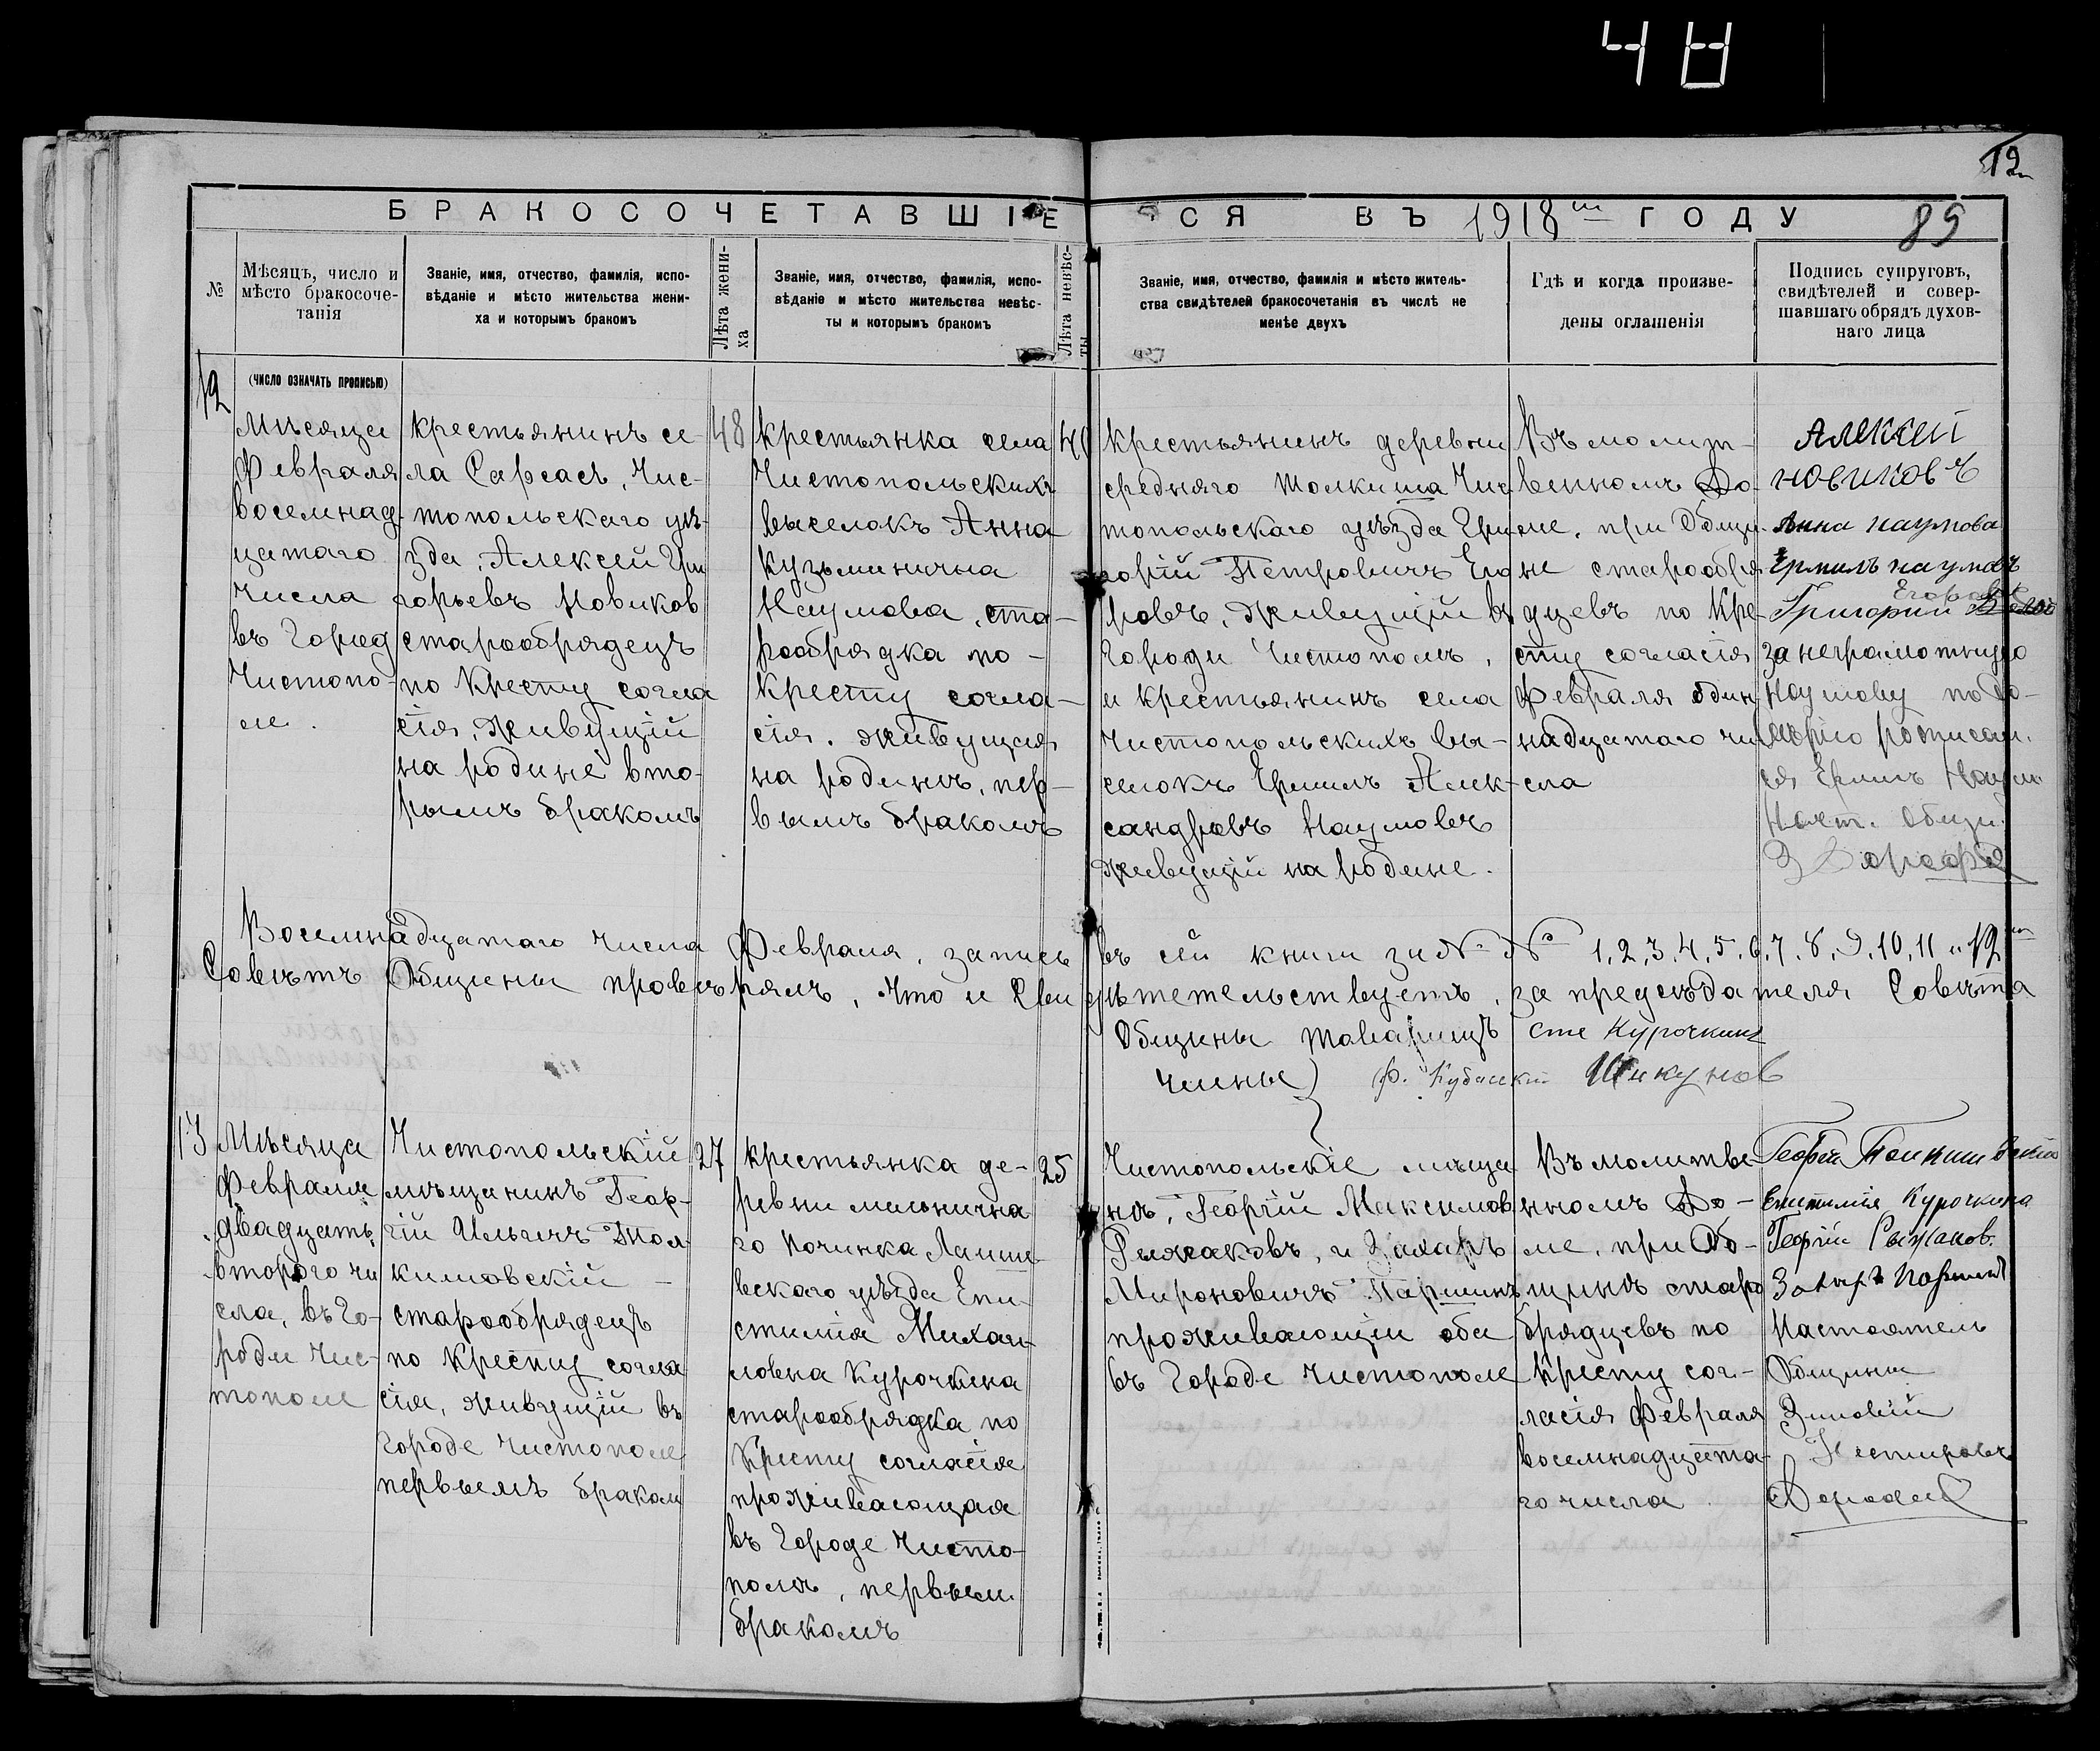 48
12
БРАКОСОЧЕТАВШІЕСЯ ВЪ 1918 ГОДУ
89
№
Мѣсяцъ, число и
мѣсто бракосоче-
танія
Званіе, имя, отчество, фамилія, испо-
вѣданіе и мѣсто жительства жени-
ха и которымъ бракомъ
Лѣта жени-
ха
Званіе, имя, отчество, фамилія, испо-
вѣданіе и мѣсто жительства невѣс-
ты и которымъ бракомъ
Лѣта невѣс-
ты
Званіе, имя, отчество, фамилія и мѣсто житель-
ства свидѣтелей бракосочетанія въ числѣ не
менѣе двухъ
Гдѣ и когда произве-
дены оглашенія
Подпись супруговъ,
свидѣтелей и совер-
шавшаго обрядъ духов-
наго лица
(число означать прописью)
12
Мѣсяца
Февраля
восемнад-
цатаго
числа
въ Город
Чистопо-
ле.
крестьянинъ се-
ла Сарсасъ, Чис-
топольскаго уѣ-
зда, Алексей Гри
горьевъ Новиков
старообрядецъ
по Кресту согла
сія, живущій
на родине вто-
рымъ бракомъ
48
крестьянка села
Чистопольскихъ
выселокъ Анна
Кузьминична
Наумова, ста-
рообрядка по-
Кресту согла-
сія. живущая
на родинѣ, пер-
вымъ бракомъ
40
крестьянинъ деревни
средняго Толкиша Чис-
топольскаго уѣзда Гри
горій Петровичъ Его
ровъ, живущій въ
городе Чистополѣ,
и крестьянинъ села
Чистопольскихъ вы-
селокъ Ермилъ Алек-
сандровъ Наумовъ
живущій на родине.
Въ молит-
венномъ До-
ме, при Общи-
не старообря
дцевъ по Кре-
сту согласія
Февраля один
надцатаго чи
сла
Алексей
Новиковъ
Анна Наумова
Ермилъ Наумовъ
Егоровъ
Григорий
за неграмотную
Наумову по до-
верію росписал
ся Ермилъ Наумов
Наст. Общи.
З
Восемнадцатаго числа Февраля, запись въ сей книги за №№ 1,2,3,4,5,6,7,8,9,10,11 и 12
Совѣтъ Общины провѣрялъ, что и Свидѣтетельствуетъ, за предсѣдателя Совѣта
Общины товарищъ сте Курочкинъ
члены) Ф. Кубаскин Шикунов
13
Мѣсяца
Февраля
двадцать
второго чи
сла, въ Го-
роде Чис-
тополе
Чистопольскій
мѣщанинъ Геор-
гій Ильичъ Тол
кишовскій
старообрядецъ
по Кресту согла
сія, живущій въ
городе Чистополе
первымъ браком
27
крестьянка де-
ревни мельнична
го Починка Лаише
вскаго уѣзда Епи-
стимія Михаи-
ловна Курочкина
старообрядка по
Кресту согласія
проживающая
въ Городе Чисто-
полѣ, первым
бракомъ
25
Чистопольскіе мѣща
нѣ, Георгій Максимов
Рыжаковъ, и Захаръ
Мироновичъ Паршинъ
проживающіи оба
въ Городе Чистополе
Въ молитве
нномъ До-
ме, при Об-
щинѣ старо
брядцевъ по
Кресту сог-
ласія Февраля
восемнадцата-
го числа
Георгій Толкишевский
Епистимія Курочкина
Георгій Рыжаков.
Захаръ Паршинъ
Настоятель
Общины
Зиновий
Нестеровъ